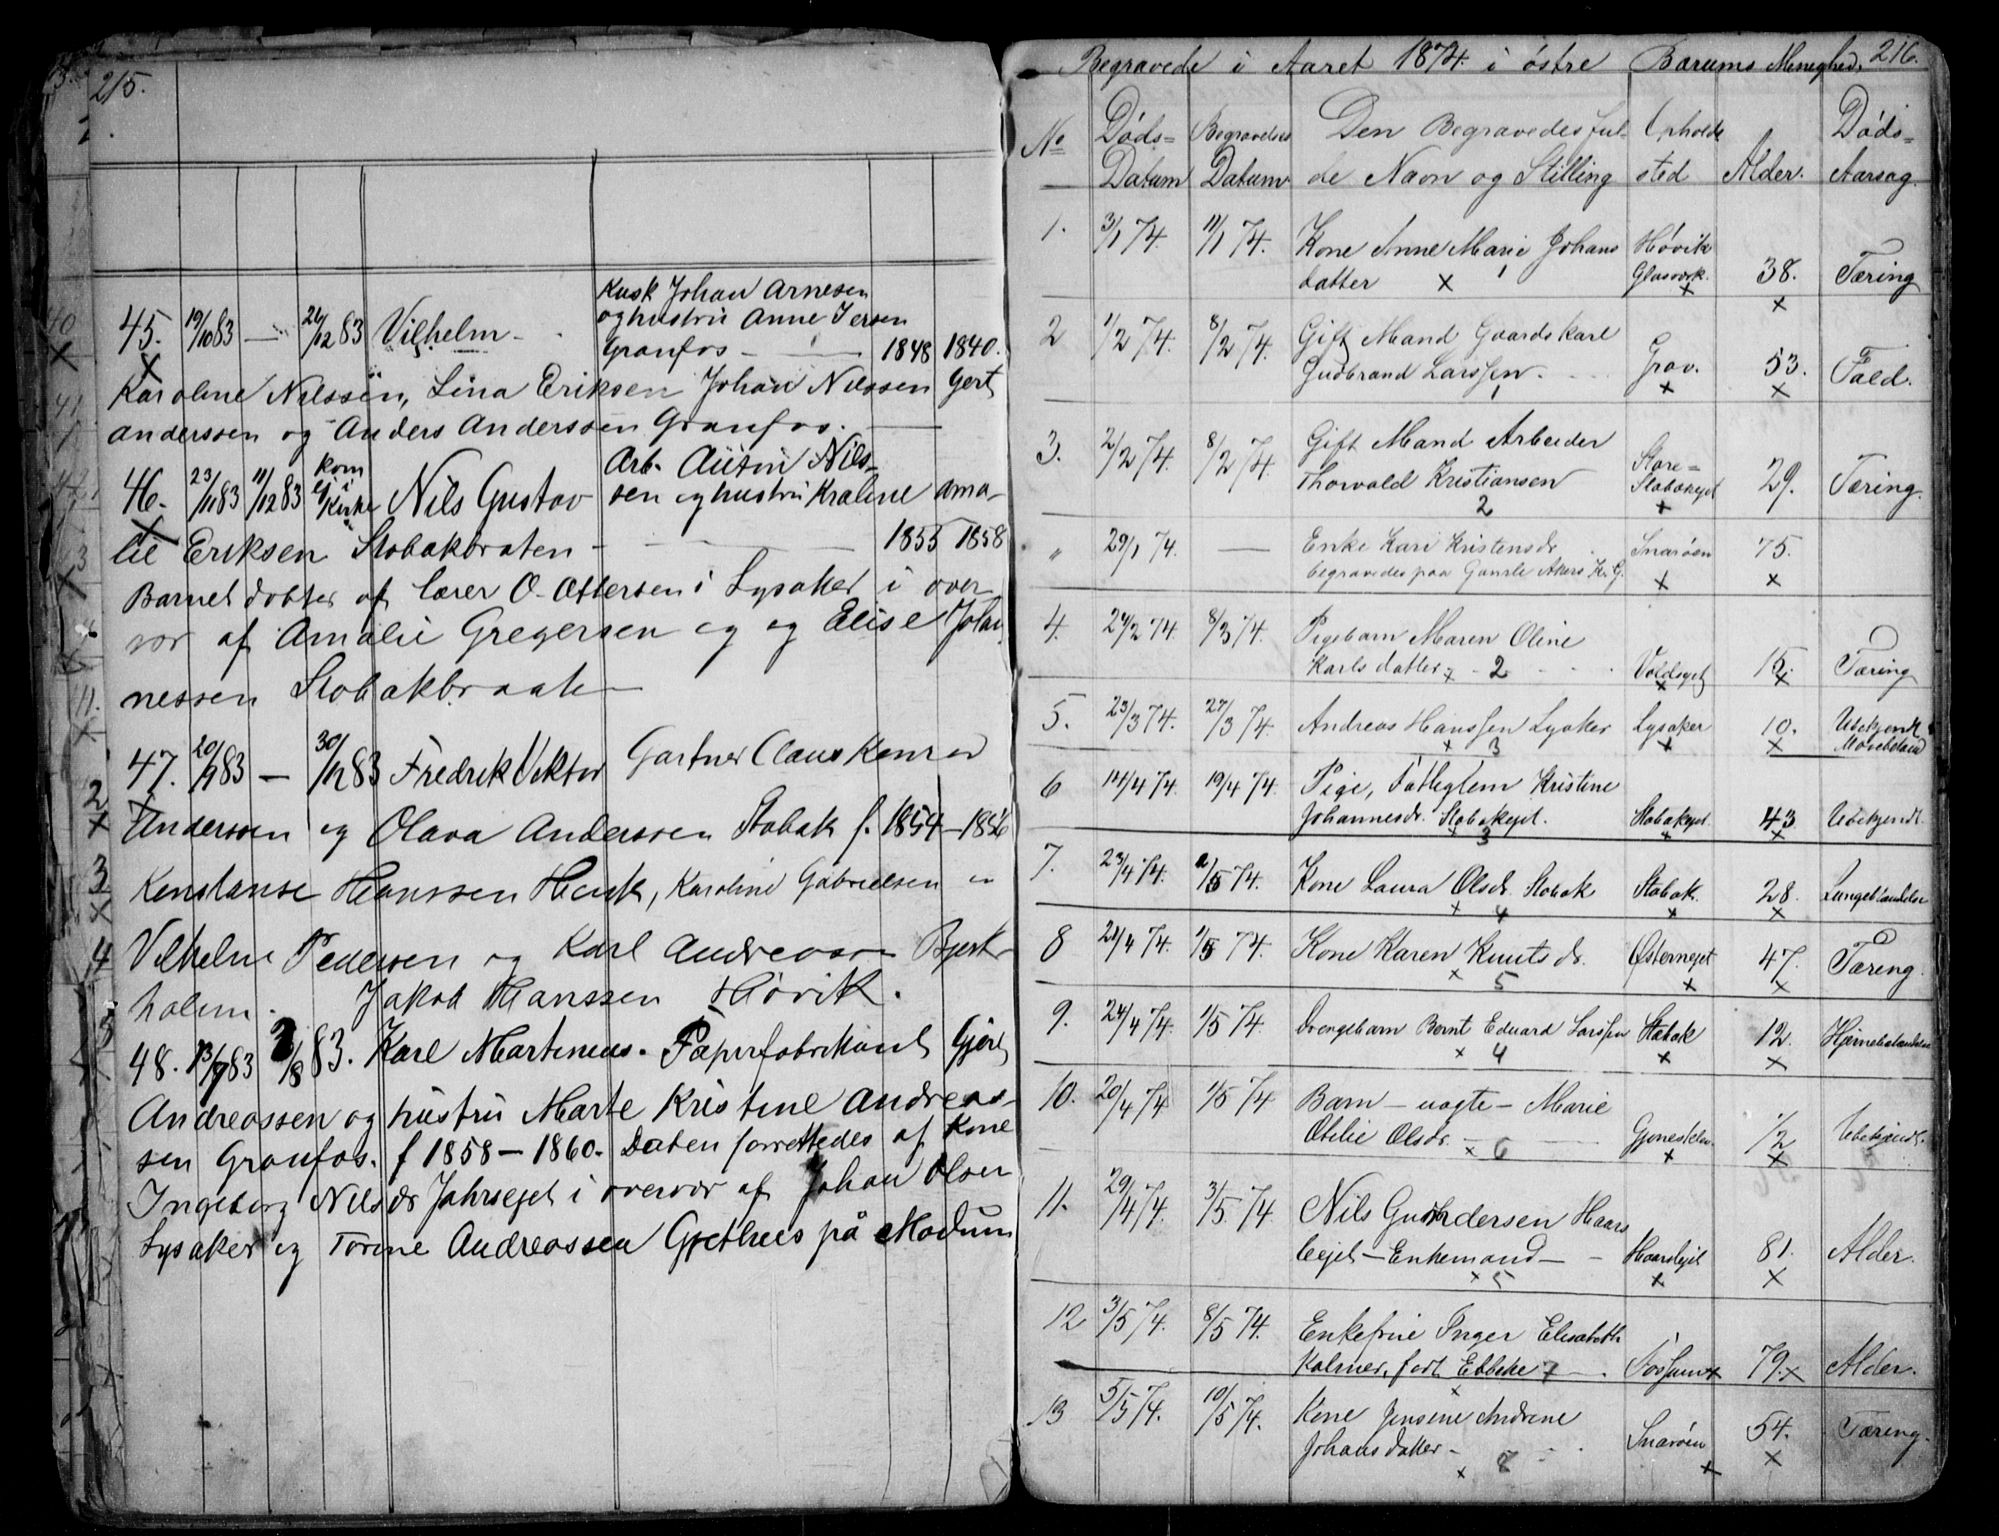 215.
Kusk Johan Arnesen
og hustru Anne Iversen
45. 19/10 83 — 26/12 83 Vilhelm - Granfos - 1848 1840.
Karoline Nilssen, Lina Eriksen Johan Nilssen Gert
anderssen og Anders Anderssen Granfos.
46. 23/11 83 11/12 83 kom ej i Kirke Nils Gustav Arb. Nils-
sen og hustru Kraline ama-
lie Eriksen Stobakbraten - 1855 1858
Barnet døbtes af lærer O. Ottersen i Lysaker i over
vær af Amalie Gregersen og og Elise Johan
nessen Stobakbraaten
47. 83 — 30/12 83 Fredrik Viktor Gartner Claus Konrad
Anderssen og Olava Anderssen Stabak f. 1854 - 1856
Konstanse Hanssen Høvik, Karoline Gabrielsen
Vilhelm Pedersen og Karl Andreassen Bjerk
holm. Jakob Hanssen Høvik.
48. 13/7 83 83. Karl Martinius. Papirfabrikant Gjert
Andreassen og hustru Marte Kristine Andreas-
sen Granfos. f 1858 - 1860. Daaben forrettedes af Kone
Ingeborg Nilsdr Jahrsejet i overvær af Johan Olsen
Lysaker og Torine Andreassen Gjethus på Modum
Begravede i Aaret 1874. i østre Bærums Menighed. 216.
No Døds=Datum Begravelses Datum Den Begravedes ful-de Navn og Stilling Opholds sted Alder. Døds=Aarsag.
1. 3/1 74. 11/1 74. Kone Anne Marie Johans Høvik
datter x 1 Glasværk. x 38. x Tæring
2 1/2 74. 8/2 74. Gift Mand Gaardskarl
Gudbrand Larssen. 1 Grav. x 53. x Fald.
3. 2/2 74. 8/2 74. Gift Mand Arbeider Store=
Thorvald Kristiansen 2 Stabakejet x 29. Tæring.
" 29/1 74. — Enke Kari Kristensdr. Snarøen 75.
begravedes paa Gamle Akers K. G. x x
4. 24/2 74. 8/3 74. Pigebarn Maren Oline
Karlsdatter x 2 Voldsejet x 15. x Tæring
5. 23/3 74. 27/3 74. Andreas Hanssen Lysaker Lysaker 10. Ubekjendt
x 3 x x
6 14/4 74. 19/4 74. Pige, Fattiglem Kristine
Johannesdr. Stabakejet. 3 Stabakejet. x 43 x Ubekjendt.
7. 23/4 74. 1/5 74. Kone Laura Olsdr. Stabak Stabak. 28. Lungebetændelse
x 4 x x
8 24/4 74. 1/5 74. Kone Karen Knutsdr. Østernejet 47. Tæring.
x 5 x x
9. 24/4 74. 1/5 74. Drengebarn Bernt Eduard Larssen Stabak 12. Hjernebetændelse
x 4 x x
10. 20/4 74 1/5 74 Barn — uægte — Marie
Otilie Olsdr. - x 6 x 1/2 x Ubekjendt.
11. 29/4 74. 3/5 74 Nils Gundersen Haars
lejet — Enkemand — x 5 Haarslejet x 81. x Alder.
12 3/5 74. 8/5 74. Enkefrue Inger Elisabeth
Kolmer, født Ebbeke 7 x Fossum x 79. x Alder.
13 5/5 74. 10/5 74. Kone Jensine Andrine
Johansdatter - x 8 Snarøen x 54. x Tæring.